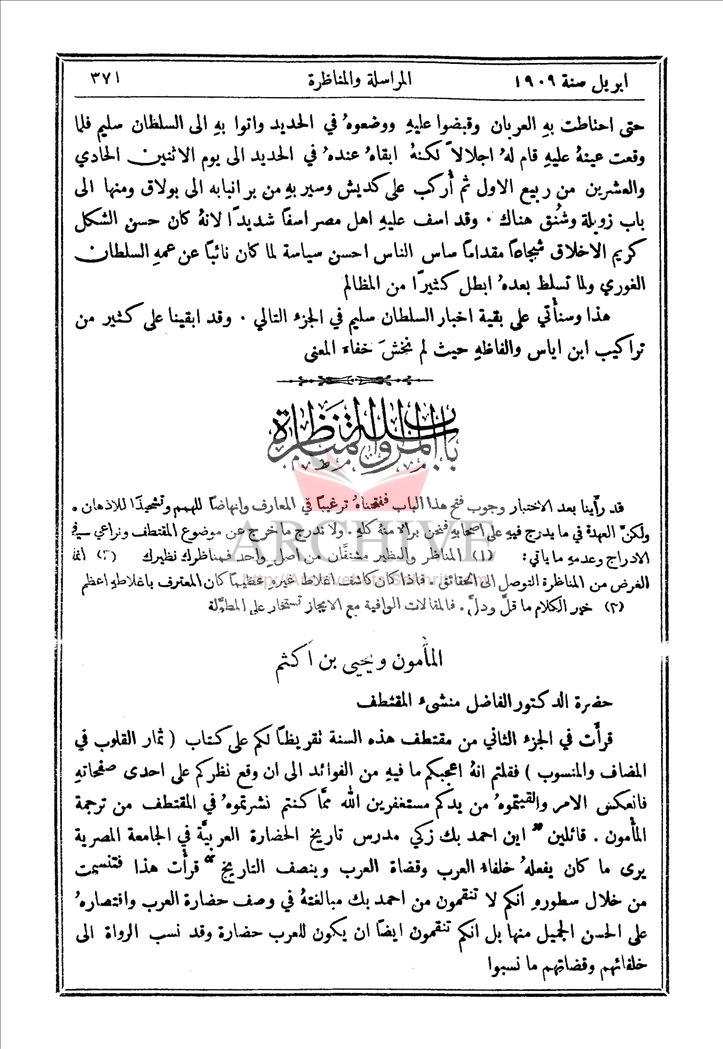 ابريل سنة ١٩٠٩ المراسلة والمناظرة ٣٧١
حتى احتاطت بهِ العربان وقبضوا عليهِ ووضعوهُ في الحديد واتوا بهِ الى السلطان سليم فلما
وقعت عينهُ عليهِ قام لهُ اجلالاً لكنهُ ابقاهُ عندهُ في الحديد الى يوم الاثنين الحادي
والعشرين من ربيع الاول ثم أُركب على كديش وسير بهِ من بر انبابه الى بولاق ومنها الى
باب زويلة وشُنق هناك . وقد اسف عليهِ اهل مصر اسفًا شديدًا لانهُ كان حسن الشكل
كريم الاخلاق شجاعًا مقدامًا ساس الناس احسن سياسة لما كان نائبًا عن عمهِ السلطان
الغوري ولما تسلط بعدهُ ابطل كثيرًا من المظالم
هذا وسنأتي على بقية اخبار السلطان سليم في الجزء التالي . وقد ابقينا على كثير من
تراكيب ابن اياس والفاظهِ حيث لم نخشَ خفاءَ المعنى
باب المراسلة والمناظرة
قد رأينا بعد الاختبار وجوب فتح هذا الباب ففتحناهُ ترغيبًا في المعارف وانهاضًا للهمم وتشحيذًا للاذهان .
ولكنّ العهدة في ما يدرج فيهِ على اصحابهِ فنحن برالا منهُ كلهِ . ولا ندرج ما خرج عن موضوع المقتطف ونراعي في
الادراج وعدمهِ ما ياتي : (١) المناظر والنظير مشتقّان من اصل واحد فمناظرك نظيرك (٢) انما
الغرض من المناظرة التوصل الى الحقائق . فاذا كان كاشف اغلاط غيرهِ عظيمًا كان المعترف باغلاطهِ اعظم
(٣) خير الكلام ما قلّ ودلّ . فالمقالات الوافية مع الايجاز تستخار على المطوّلة
المأمون ويحيى بن اكثم
حضرة الدكتور الفاضل منشىء المقتطف
قرأْت في الجزء الثاني من مقتطف هذه السنة تقريظًا لكم على كتاب ( ثمار القلوب في
المضاف والمنسوب ) فقلتم انهُ اعجبكم ما فيهِ من الفوائد الى ان وقع نظركم على احدى صفحاتهِ
فانعكس الامر والقيتموهُ من يدكم مستغفرين الله ممّا كنتم نشرتموهُ في المقتطف من ترجمة
المأمون . قائلين " اين احمد بك زكي مدرس تاريخ الحضارة العربيَّة في الجامعة المصرية
يرى ما كان يفعلهُ خلفاءُ العرب وقضاة العرب وبنصف التاريخ " قرأْت هذا فتنسمت
من خلال سطورهِ انكم لا تنقمون من احمد بك مبالغتهُ في وصف حضارة العرب واقتصارهُ
على الحسن الجميل منها بل انكم تنقمون ايضًا ان يكون للعرب حضارة وقد نسب الرواة الى
خلفائهم وقضاتهم ما نسبوا
ARCHIVE